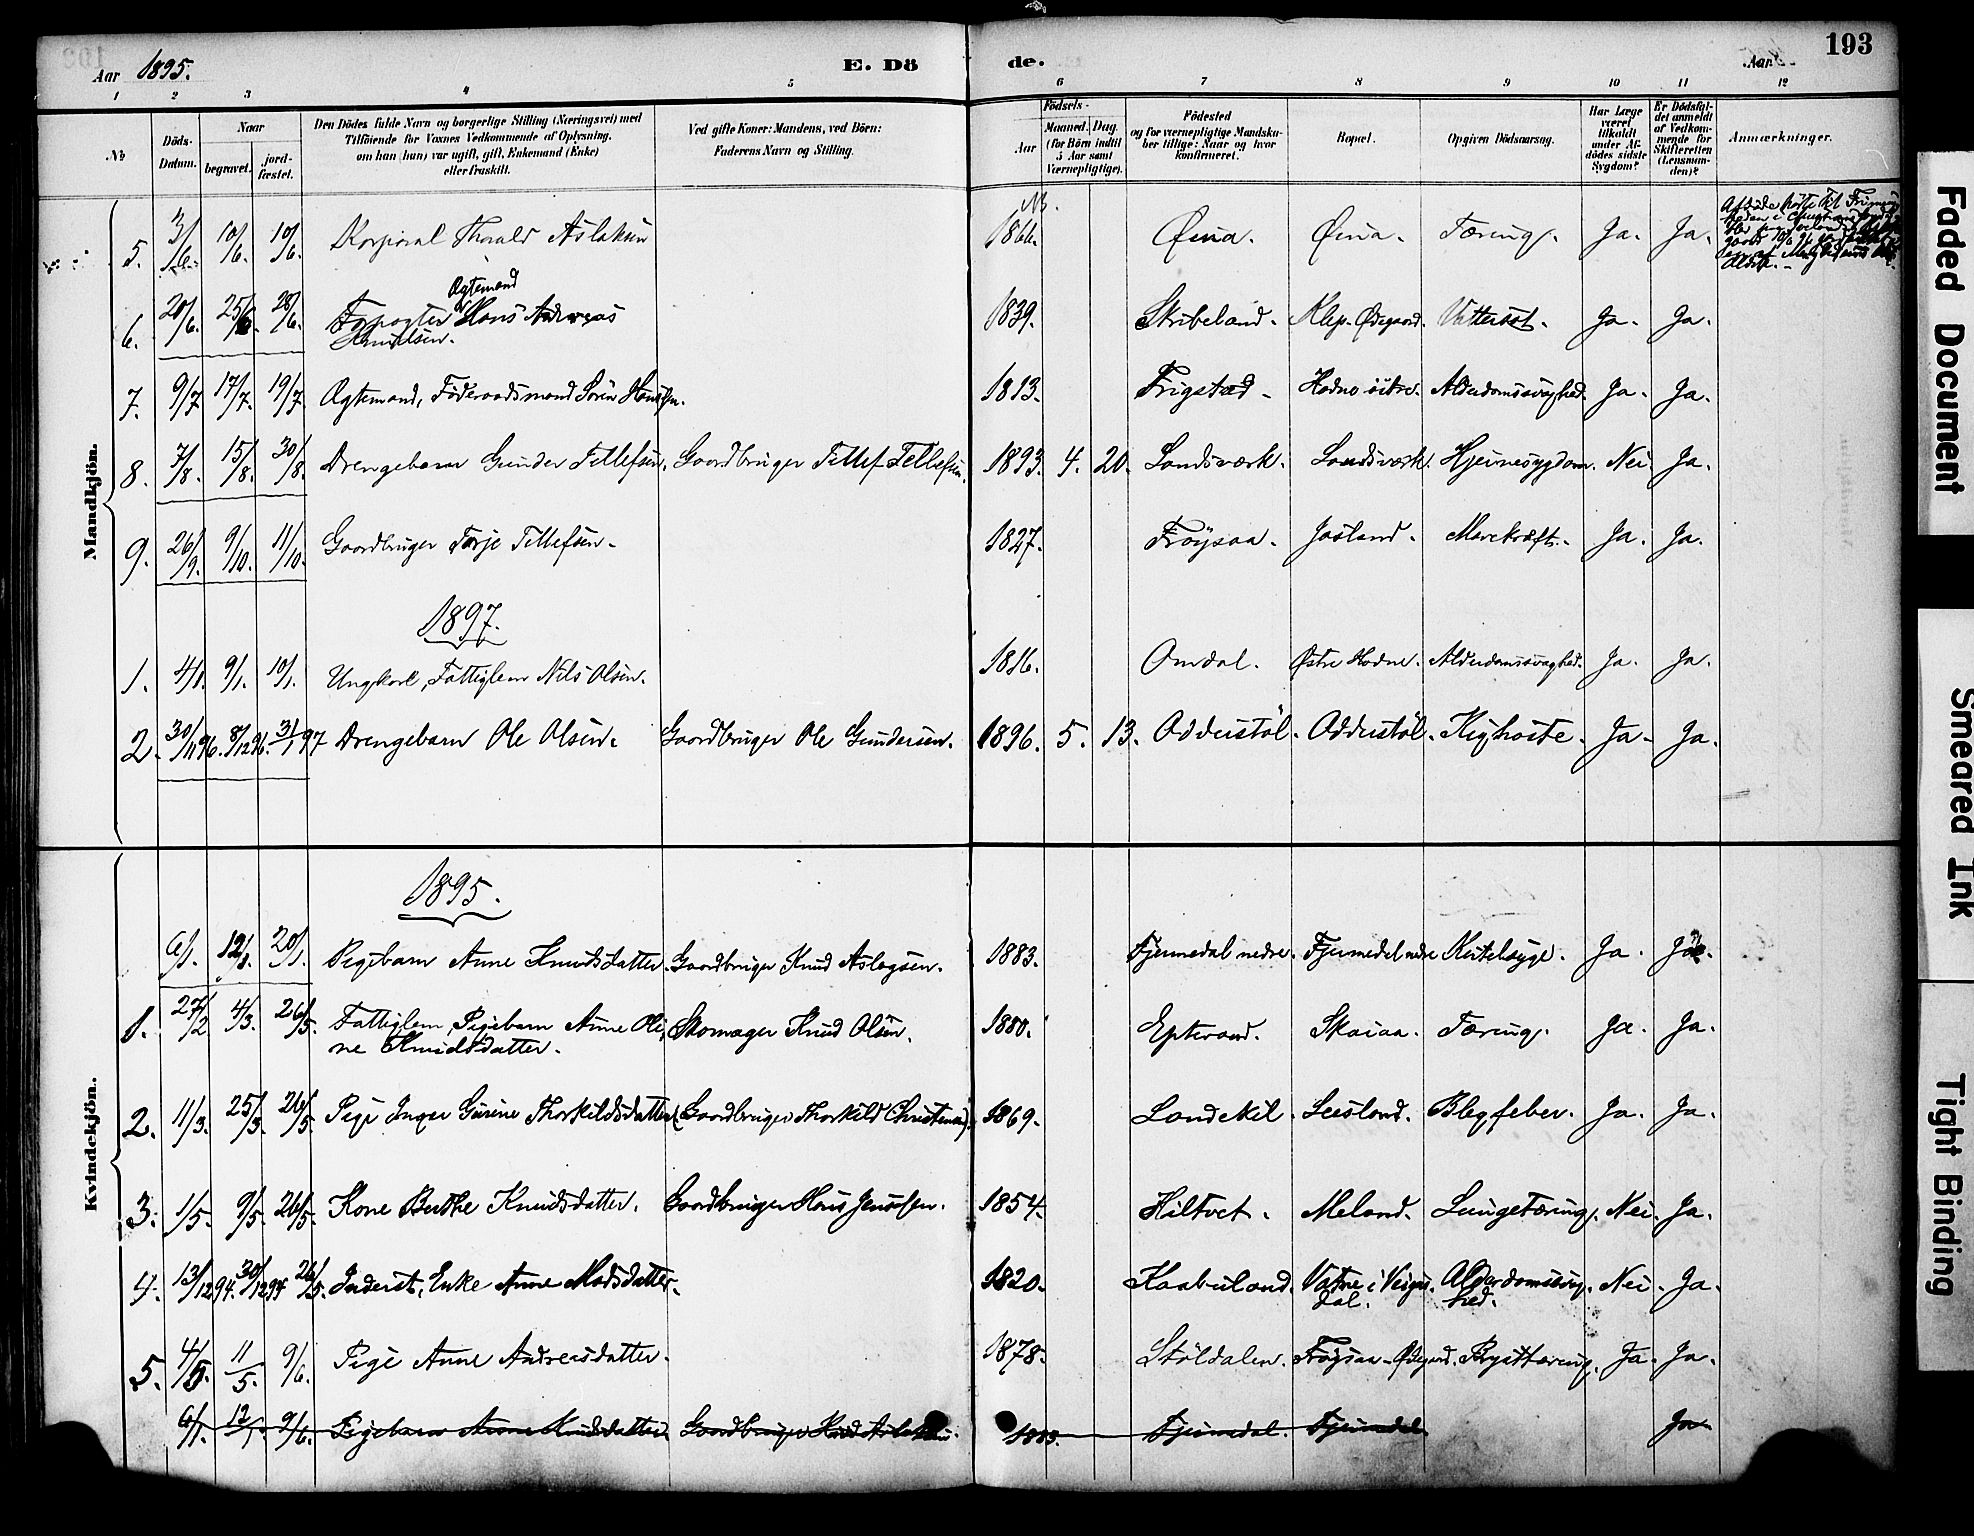 Aar 1895.
E. Dö
de.
Aar
193
1 2 3 4 5 6 7 8 9 10 11 12
№
Döds-Datum.
Naar
begravet.
jord-fæstet.
Den Dödes fulde Navn og borgerlige Stilling (Næringsvei) med
Tilföiende for Voxnes Vedkommende af Oplysning,
om han (hun) var ugift, gift, Enkemand (Enke)
eller fraskilt.
Ved gifte Koner: Mandens, ved Börn:
Faderens Navn og Stilling.
Födsels-
Aar
Maaned. Dag.
(for Börn indtil
5 Aar samt
Værnepligtige).
Födested
og for værnepligtige Mandsku-
ber tillige: Naar og hvor
konfirmeret.
Bopæl.
Opgiven Dödsaarsag.
Har Læge
været
tilkaldt
under Af-
dödes sidste
Sygdom?
Er Dödsfal-
det anmeldt
af Vedkom-
mende for
Skifteretten
(Lensman-
den)?
Anmærkninger.
Mandkjön.
5. 3/6. 10/6. 10/6. Korporal Thorald Aslaksen 1866. Øina. Øina. Tæring. Ja. Ja.
6. 20/6. 25/6. 28/6. Ægtemand Forpagter Hans Andreas
Knudsen. 1839. Skribeland. Klep. Ødegaard. Vattersot. Ja. Ja.
7. 9/7 17/7. 19/7 Ægtemand, Föderaadsmand Sören Hansen. 1813. Frigstad. Hodne östre. Alderdomssvaghed. Ja. Ja.
8. 7/8. 15/8. 30/8. Drengebarn Gunder Tellefsen. Gaardbruger Tellef Tellefsen. 1893. 4. 20. Landsværk. Landsværk. Hjernesygdom. Nei. Ja.
9. 26/9. 9/10. 11/10. Gaardbruger Terje Tellefsen. 1827. Fröysaa. Jaaland. Marekræft. Ja. Ja.
1897.
1. 4/1. 9/1. 10/1. Ungkarl, Fattiglem Nils Olsen. 1816. Omdal. Østre Hodne. Alderdomssvaghed. Ja. Ja.
2. 30/11 96. 8/12 96. 31/1 97 Drengebarn Ole Olsen. Gaardbruger Ole Gundersen. 1896. 5. 13. Oddestöl. Oddestöl. Kighoste. Ja. Ja.
Kvindekjön.
1895.
6/1. 12/1. 20/1. Pigebarn Anne Knudsdatter. Gaardbruger Knud Aslagsen. 1883. Fjermedal nedre. Fjermedal nedre Kirtelsyge. Ja. Ja.
1. 27/2 4/3. 26/5. Fattiglem, Pigebarn Anne Oli-
ne Knudsdatter. Skomager Knud Olsen. 1880. Epterand. Skaiaa. Tæring. Ja. Ja.
2. 11/3. 25/3. 26/5. Pige Inger Gurine Thorkildsdatter (Gaardbruger Thorkild Christensen). 1869. Landekil. Leesland. Blegfeber. Ja. Ja.
3. 1/5. 9/5. 26/5. Kone Berthe Knudsdatter. Gaardbruger Hans Jensen. 1854. Hiltvet. Meland. Lungetæring. Nei. Ja.
4. 13/12 94. 30/12 94 26/5. Inderst, Enke Anne Madsdatter. 1820. Kaabuland. Vatne i Veigus-
dal. Alderdomssvag-
hed. Nei. Ja.
5. 4/5. 11/5. 9/6. Pige Anne Andreasdatter. 1878. Stöldalen. Fröysaa-Ødegaard. Brysttæring. Ja. Ja.
6/1. 12/1. 9/6. Pigebarn Anne Knudsdatter. Gaardbruger Knud Aslaksen. 1883. Fjermedal. Fjermedal Ja
Faded Document
Smeared Ink
Tight Binding